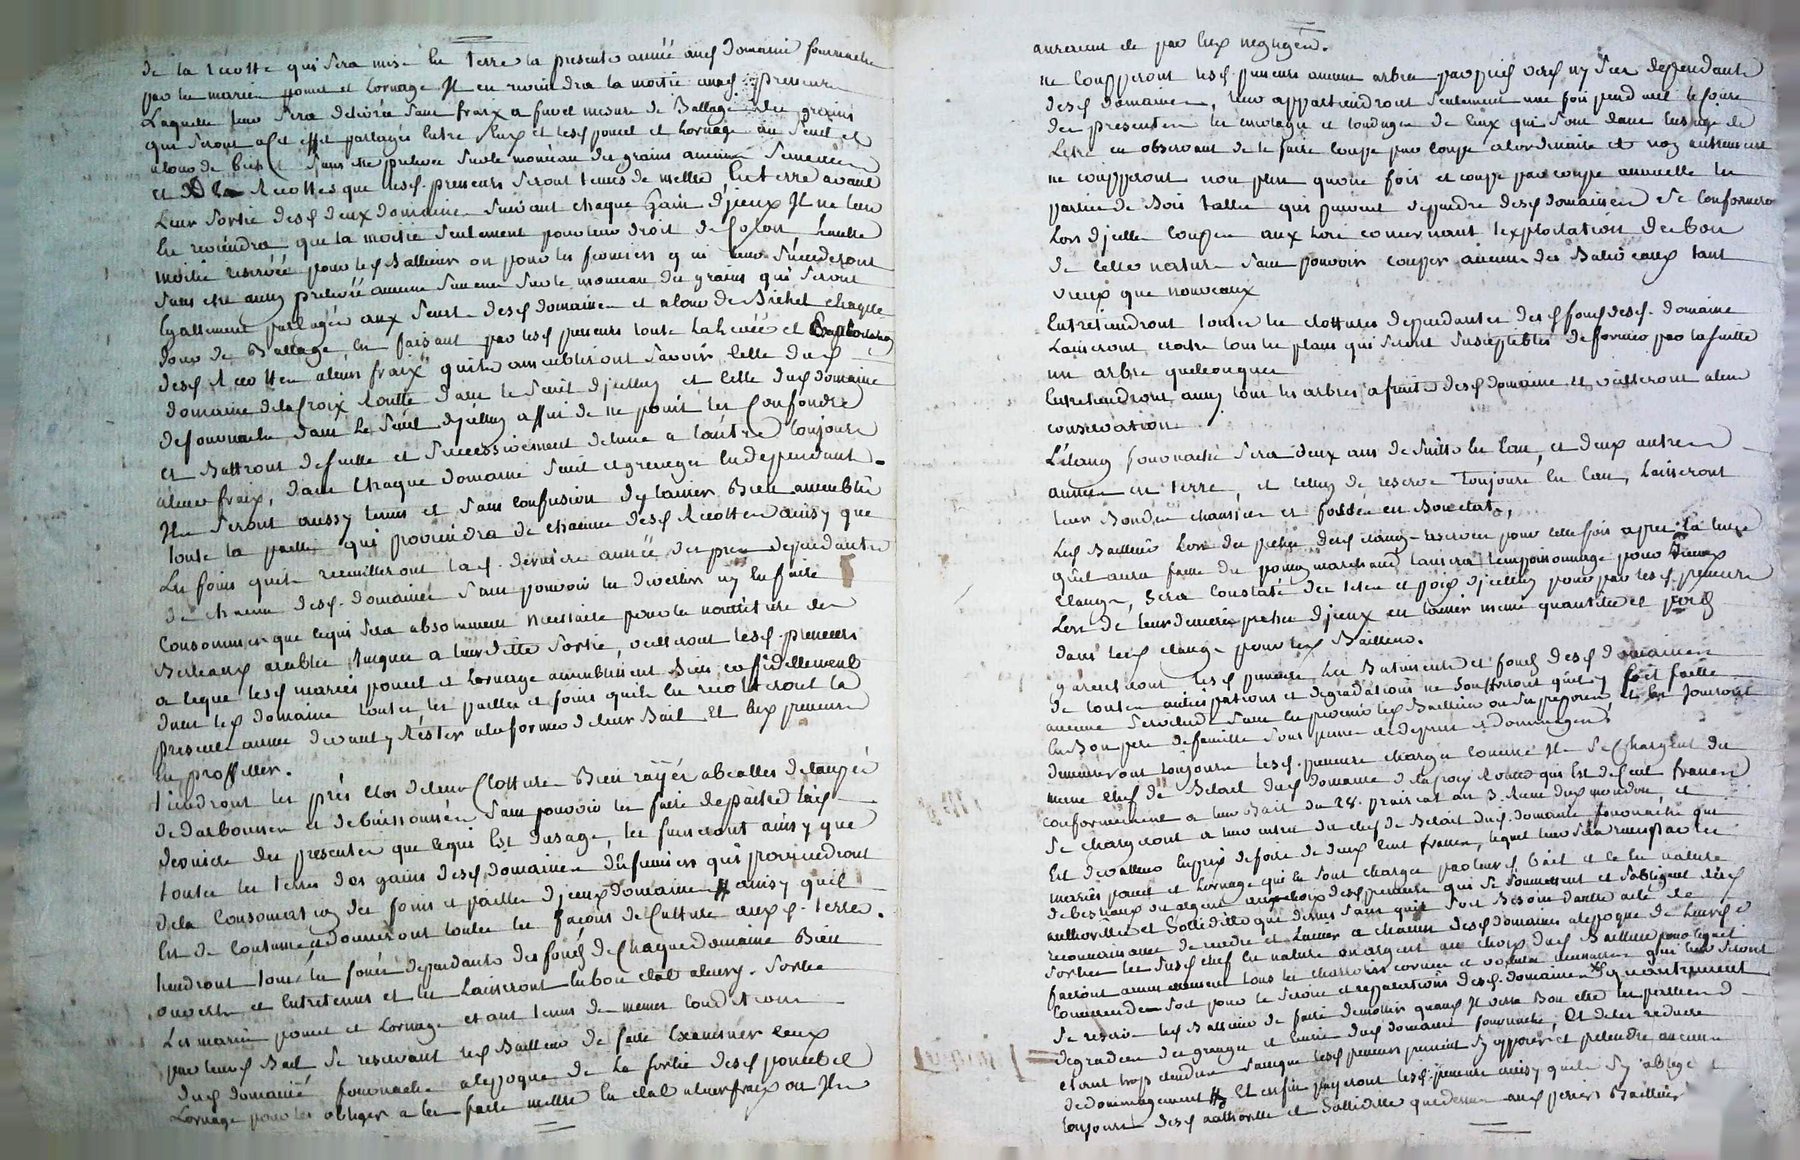 de la recotte qui sera mise en terre la presente année aud. domaine fournache
par les mariés poncet et Lornage Il en reviendra la moitié auxd. preneurs
Laquelle leur sera delivrée sans fraix a fur et mesure de Ballage des grains
qui seront a cet effet partagés entre Eux et lesd. poncet et Lornage au seuil et
sans etre prelevé sur le monceau des grains aucune semence
et recottes que lesd. preneurs seront tenus de mettre en terre avant
Leur sortie desd. deux domaines suivant chaque d'jceux Il ne leur
En reviendra que la moitié seulement pour leur droit de Colon l'autre
moitié reservée pour lesd. Bailleurs ou pour les fermiers qui leur succederont
sans etre aussy prelevé aucune semence sur le monceau des grains qui seront
Egallement partagés aux seuils desd. domaines et chaque
jour de Ballage en faisant par lesd. preneurs toute la levée et
desd. recottes a leurs fraix qu'ils ameubliront savoir celle dud.
domaine de la Croix dans le seuil d'jcelluy et celle dud. domaine
de fournache dans le seuil d'jcelluy affin de ne point les Confondre
et Battront de suitte et successivement de l'une a l'autre toujours
a leurs fraix, dans chaque domaine seuil et grenges en dependant.
Ils seront aussy tenus et sans confusion d'y laisser Bien ameublie
toute la paille qui proviendra de chacune desd. recottes ainsy que
Les foins qu'ils recueilleront lad. derniere année des prés dependants
de chacun desd. domaines sans pouvoir les divertir ny en faire
Consommer que ce qui sera absolument necessaire pour la nourriture des
Bestiaux arables jusques a leur ditte sortie, veilleront lesd. preneurs
a ce que lesd. mariés poncet et Lornage ameublissent Bien et fidellement
dans led. domaine toutes les pailles et foins qu'ils en recolteront la
presente année devant y rester a la forme de leur Bail et lesd. preneurs
En proffiter.
tiendront les prés clos de leur Clotture Bien
de darbonnieres et de buissonnées sans pouvoir les faire depaitre
des presentes que ce qui Est d'usage, les fumeront ainsy que
toutes les terres desd. domaines des fumiers qui proviendront
de la Consomation des foins et pailles d'jceux domaines ainsy qu'il
Est de coutume et donneront toutes les façons de Culture auxd. terres.
tiendront tous les fossés dependants des fonds de chaque domaine Bien
ouverts et Entretenus et les laisseront en bon etat a leurd. sortie
Les mariés poncet et Lornage etant tenus des memes conditions
par leurd. Bail se reservant lesd. Bailleurs de faire Examiner ceux
dud. domaine fournache a l'epoque de la sortie desd. poncet et
Lornage pour les obliger a les faire mettre en etat a leurs fraix ou Ils
auroient ete par Eux negligés.
ne coupperont lesd. preneurs aucuns arbres par pied vers ny secs dependants
desd. domaines, leur appartiendront seulement une fois pendant le cours
des presentes les emodages et tondages de ceux qui sont dans l'usage de
L'etre en observant de le faire coupe par coupe a l'ordinaire et non autrement
ne coupperont non plus qu'une fois et coupe par coupe annuelle les
parties de Bois taillis qui peuvent dependre desd. domaines et se conformeront
Lors d'jcelles coupes aux loix concernant l'exploitation des bois
de cette nature sans pouvoir couper aucuns des Baliveaux tant
vieux que nouveaux
Entretiendront toutes les clottures dependantes desd. fonds desd. domaines
Laisseront croitre tous les plans qui seront susceptibles de former par la suitte
un arbre quelconque
Entretiendront aussy tous les arbres a fruits desd. domaines et veilleront a leur
conservation.
L'etang fournache sera deux ans de suitte en eau, et deux autres
années en terre, et celuy de reserve toujours en eau, Laisseront
leurs Bondes chaussées et fossés en Bon etat,
Lesd. Bailleurs lors des peches desd. etangs
qu'il aura faite du poisson marchand laissera l'empoisonnage pour
Etangs, sera constaté des tetes et poids d'jcelluy pour par lesd. preneurs
Lors de leur derniere peche d'jceux en laisser meme quantité et poids
dans lesd. etangs pour lesd. Bailleurs.
garentiront lesd. preneurs les Batiments et fonds desd. domaines
de toutes anticipations et degradations ne souffriront qu'il y soit faitte
aucune servitude sans en prevenir lesd. Bailleurs ou s'y opposer et en jouiront
En Bon pere de famille sous peine de depens et dommages
demeureront toujours lesd. preneurs chargés comme Ils se chargent du
meme chef de Betail dud. domaine de la Croix qui Est de cent francs
conformement a leur Bail du 28. prairial an 3. reçu dud. et
se chargeront a leur entrée du chef de Betail dud. domaine fournache qui
Est de valleur de deux cent francs, lequel leur sera remis par les
mariés poncet et Lornage qui en sont chargés par leurd. bail et ce en nature
de bestiaux ou argent au choix desd. preneurs qui se soumettent et s'obligent desd.
authorités et sollidité que dessus sans qu'il soit Besoin d'autre acte de
reconnaissance de rendre et laisser a chacun desd. domaines a l'epoque de leurd.
sortie les susd. chefs en nature ou argent au choix dud. Bailleur
feront annuellement tous les charrois corvées et voitures qui leur seront
commandés soit pour le service et reparations desd. domaines
se reserve lesd. Bailleurs de faire demolir quand Il verra Bon etre les parties
degradées des granges et ecurie dud. domaine fournache et de les reduire
etant trop etendues sans que lesd. preneurs puissent s'y opposer et pretendre aucun
dedommagement Et enfin payeront lesd. preneurs ainsy qu'ils s'y obligent
toujours desd. authorité et sollidité que dessus auxd. Bailleurs